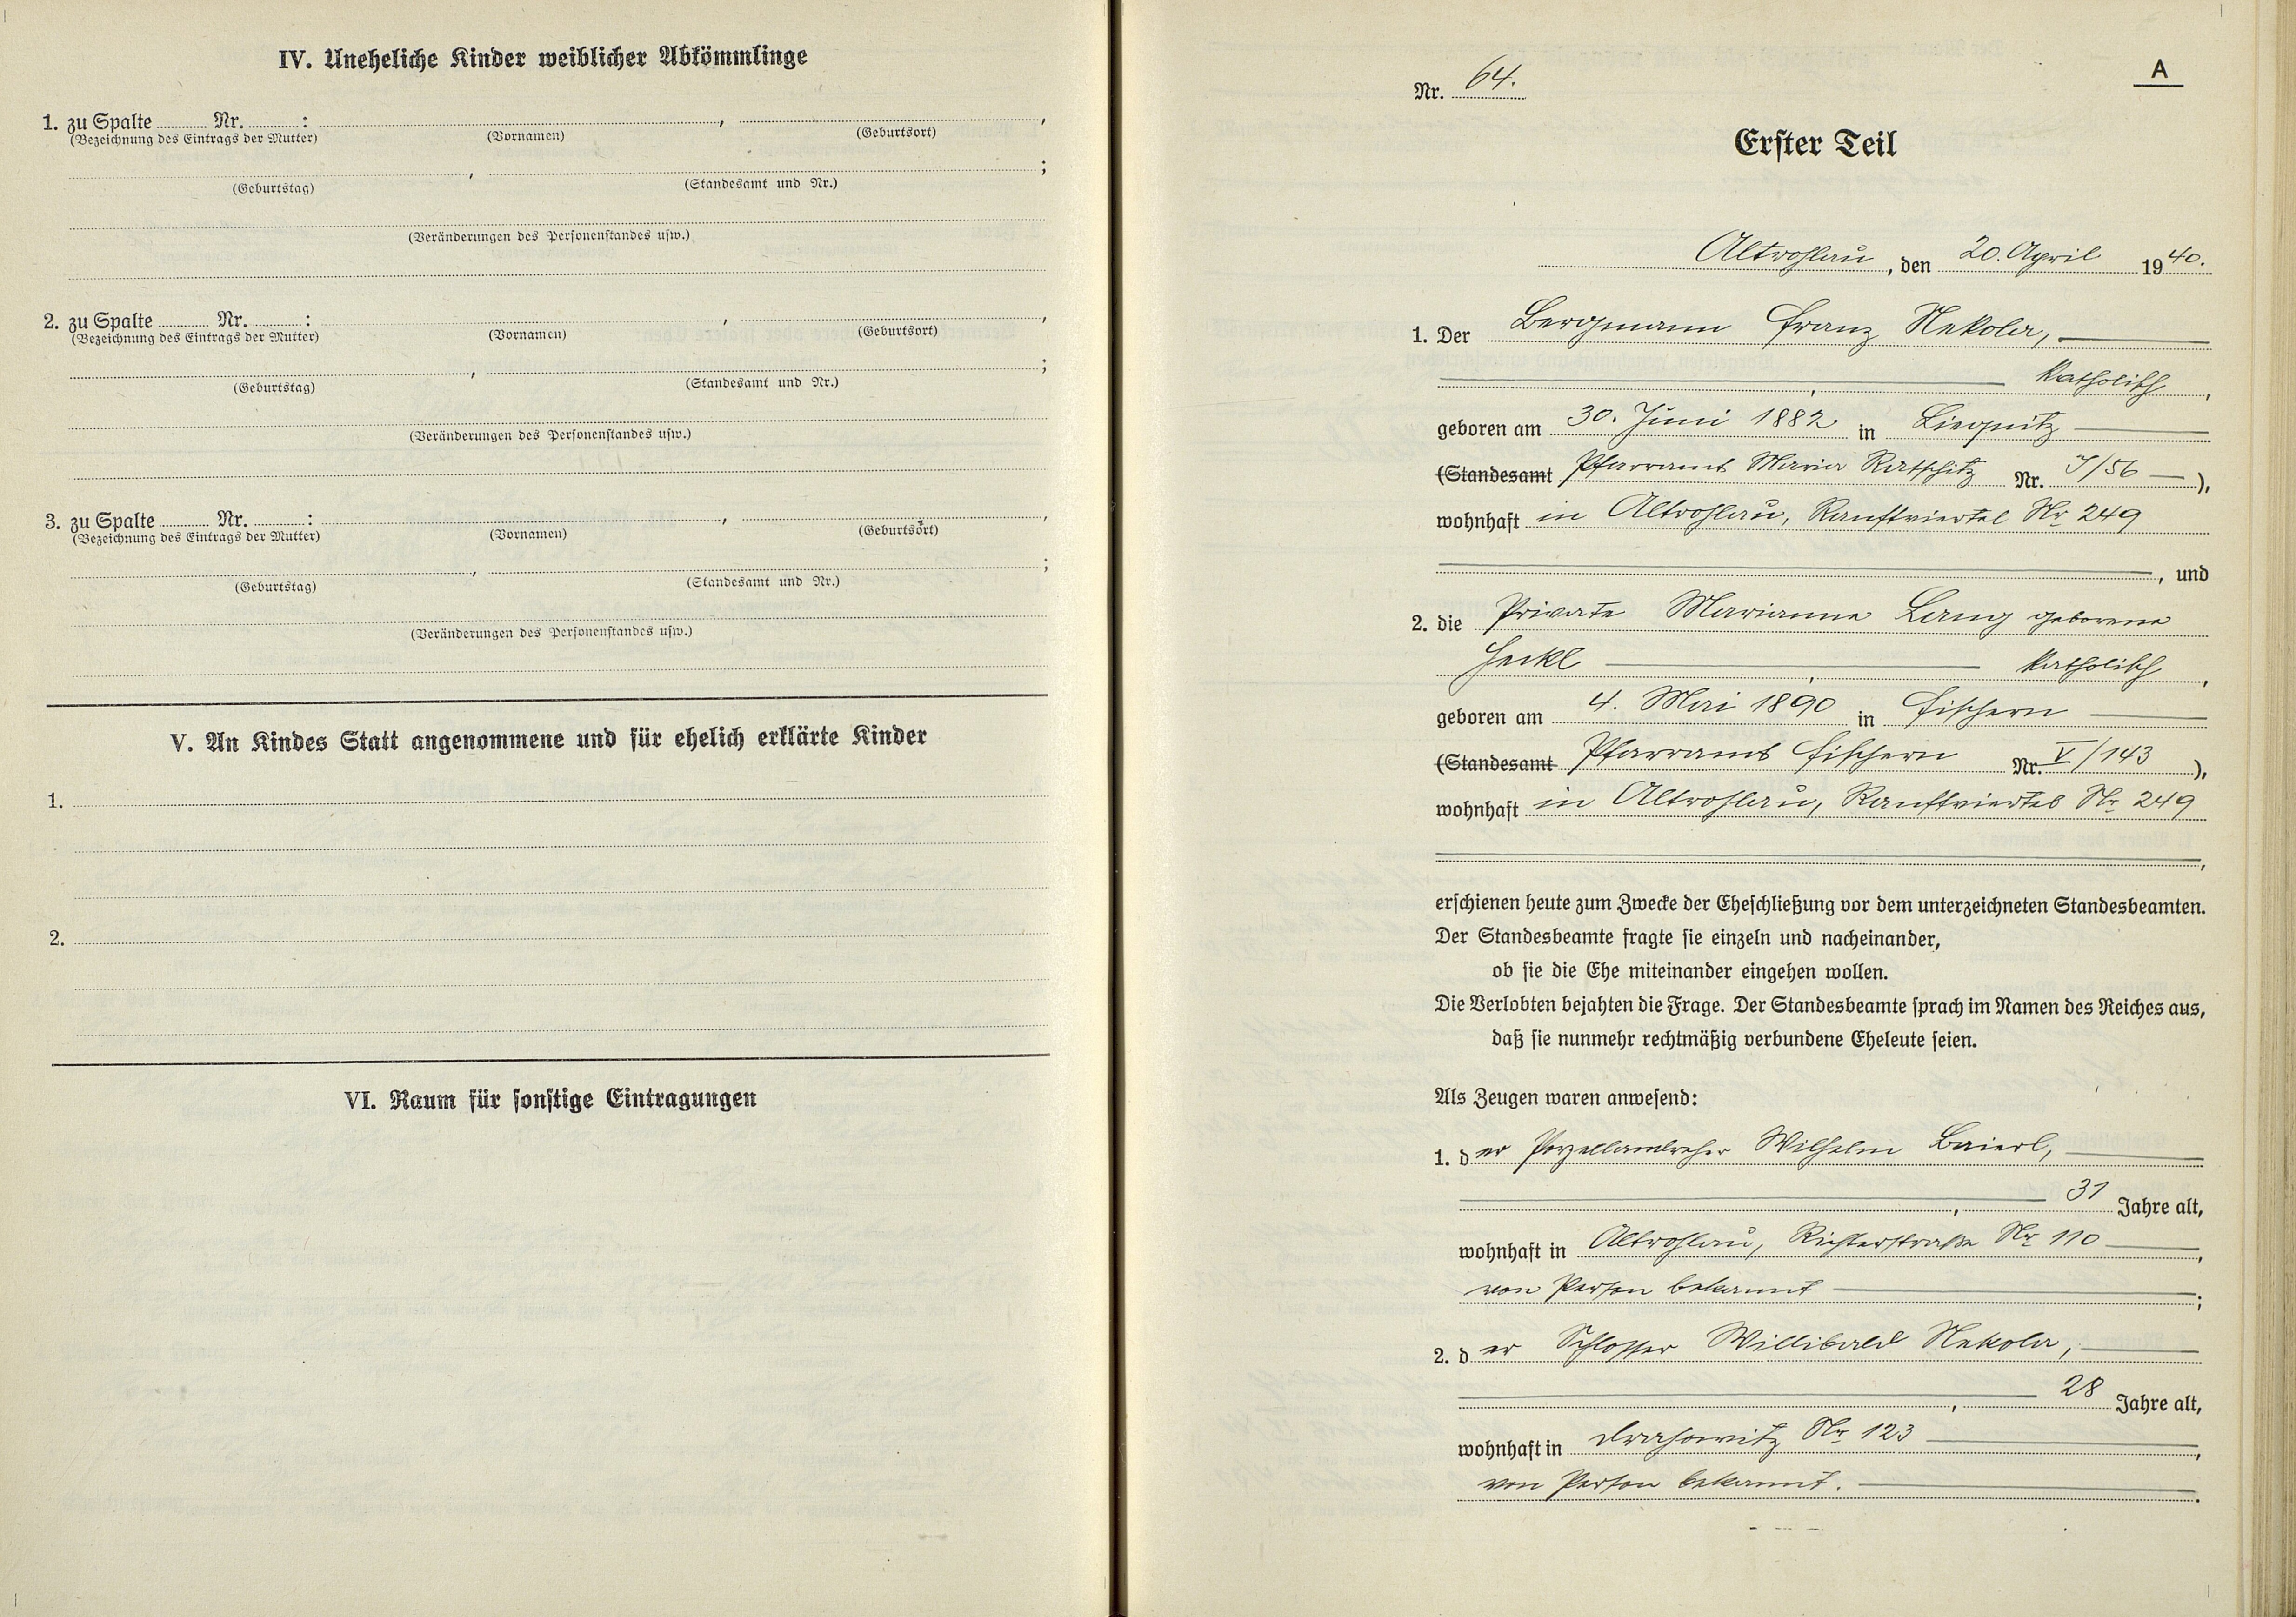 IV. Uneheliche Kinder weiblicher Abkömmlinge
1. zu Spalte ........ Nr. ........ : ........ , ........ ,
(Bezeichnung des Eintrags der Mutter) (Vornamen) (Geburtsort)
........ , ........ ;
(Geburtstag) (Standesamt und Nr.)
(Veränderungen des Personenstandes usw.)
2. zu Spalte ........ Nr. ........ : ........ , ........ ,
(Bezeichnung des Eintrags der Mutter) (Vornamen) (Geburtsort)
........ , ........ ;
(Geburtstag) (Standesamt und Nr.)
(Veränderungen des Personenstandes usw.)
3. zu Spalte ........ Nr. ........ : ........ , ........ ,
(Bezeichnung des Eintrags der Mutter) (Vornamen) (Geburtsort)
........ , ........ ;
(Geburtstag) (Standesamt und Nr.)
(Veränderungen des Personenstandes usw.)
V. An Kindes Statt angenommene und für ehelich erklärte Kinder
1.
2.
VI. Raum für sonstige Eintragungen
A
Nr. 64.
Erster Teil
Altrohlau, den 20. April 1940.
1. Der Bergmann Franz Nekola,
katholisch,
geboren am 30. Juni 1882 in Liegnitz
(Standesamt Pfarramt Maria Ratschitz Nr. 7/56),
wohnhaft in Altrohlau, Ranftviertel Nr 249
, und
2. die Private Marianne Lang geborene
Heckl katholisch,
geboren am 4. Mai 1890 in Fischern
(Standesamt Pfarramt Fischern Nr. V/143),
wohnhaft in Altrohlau, Ranftviertel Nr 249
,
erschienen heute zum Zwecke der Eheschließung vor dem unterzeichneten Standesbeamten.
Der Standesbeamte fragte sie einzeln und nacheinander,
ob sie die Ehe miteinander eingehen wollen.
Die Verlobten bejahten die Frage. Der Standesbeamte sprach im Namen des Reiches aus,
daß sie nunmehr rechtmäßig verbundene Eheleute seien.
Als Zeugen waren anwesend:
1. der Porzellandreher Wilhelm Baierl,
, 31 Jahre alt,
wohnhaft in Altrohlau, Richterstraße Nr 110,
von Person bekannt;
2. der Schlosser Willibald Nekola,
, 28 Jahre alt,
wohnhaft in Drahowitz Nr 123,
von Person bekannt.